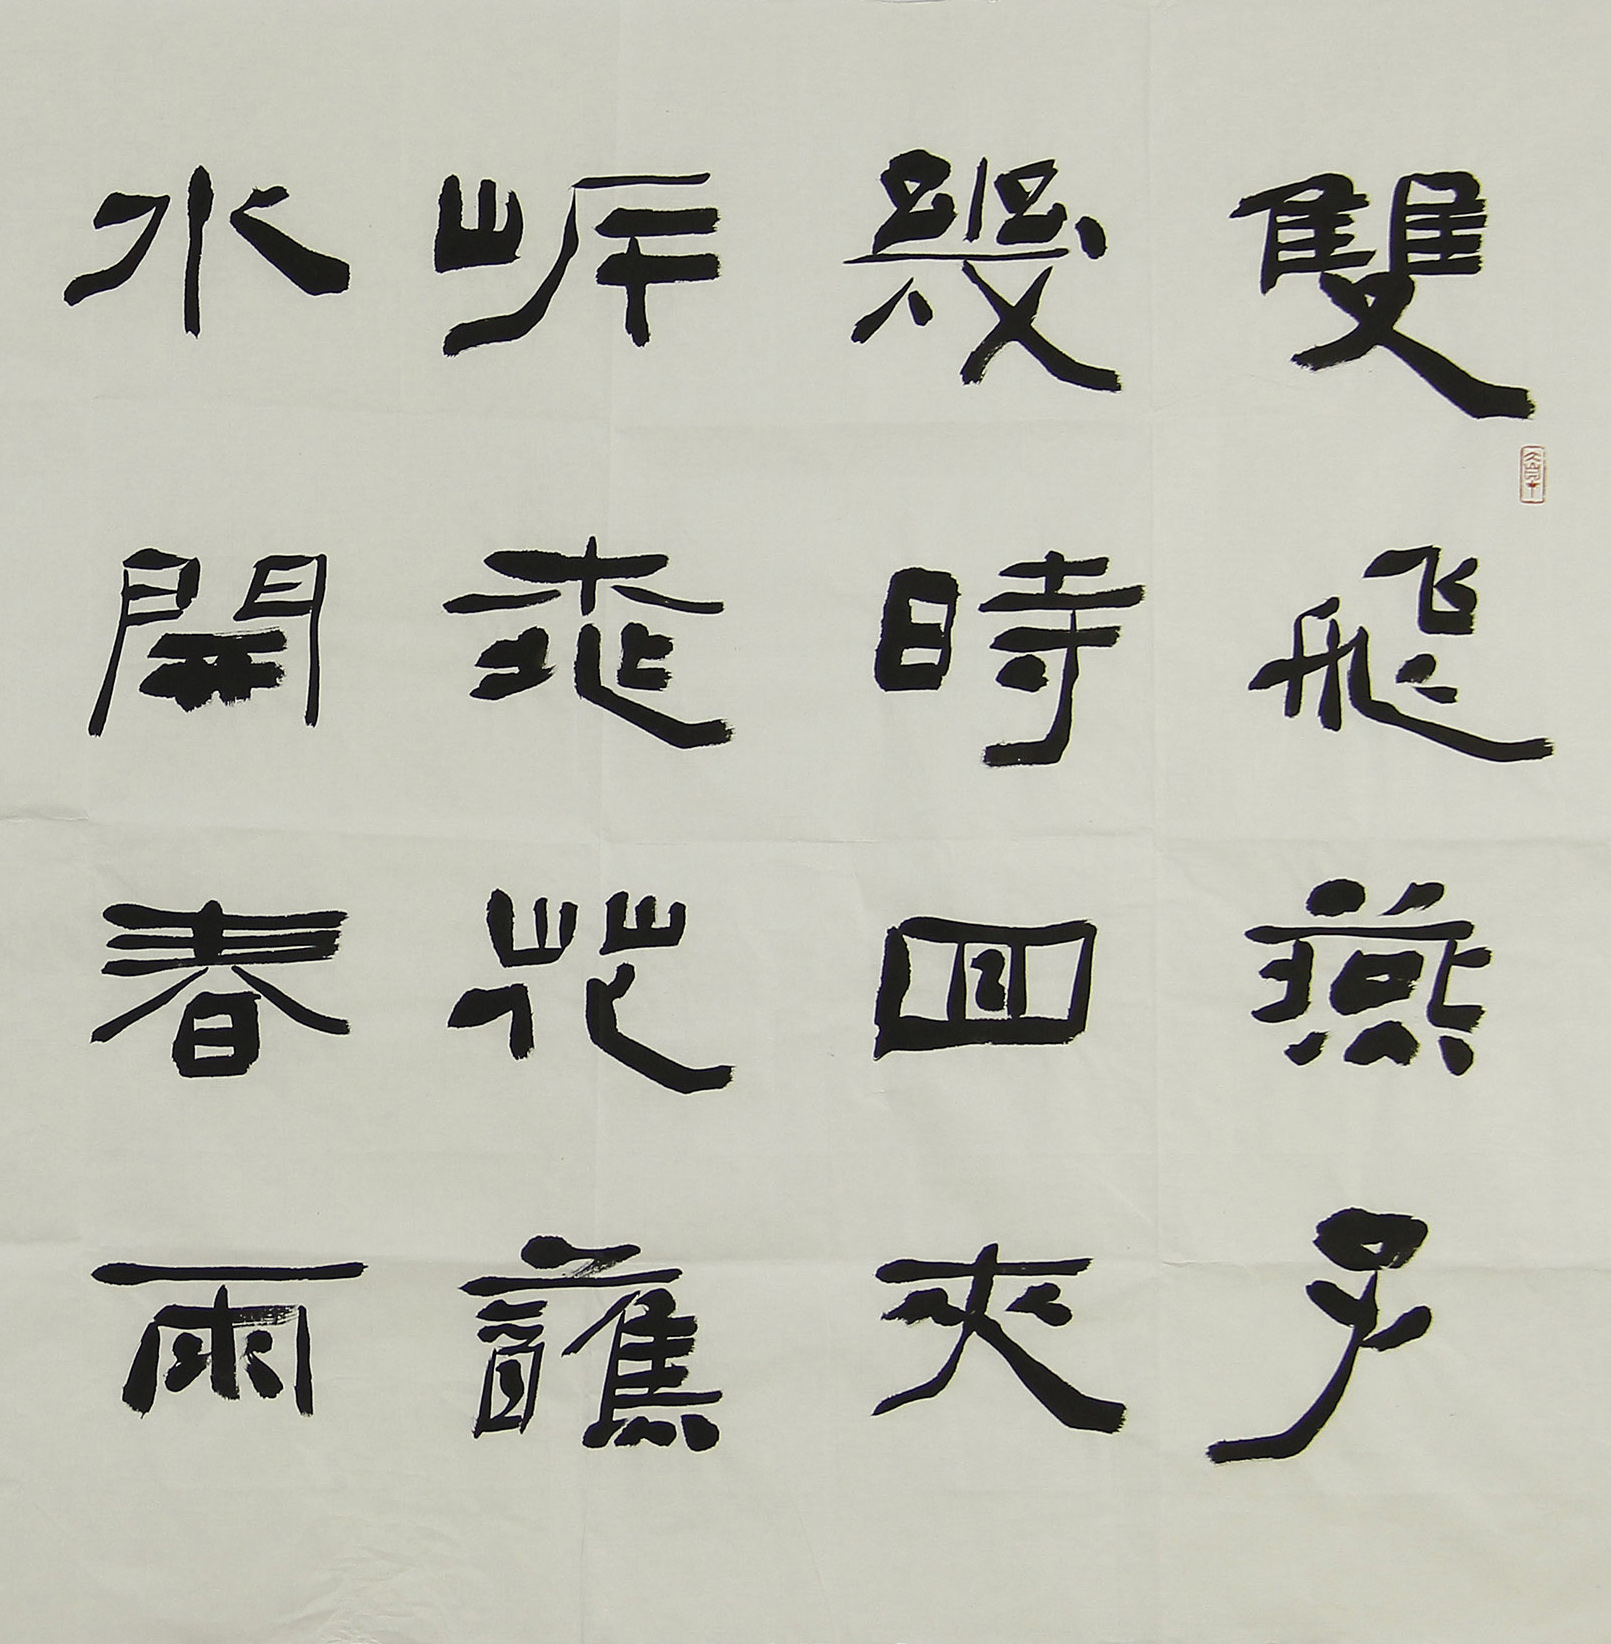 雙飛燕子
幾時回夾
岸桃花蘸
水開春雨